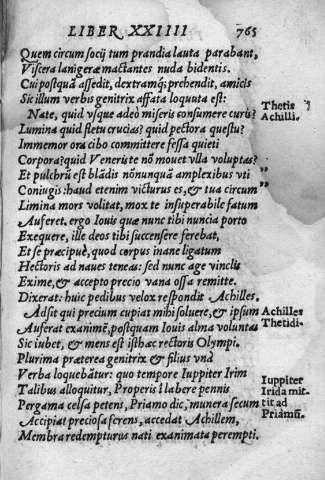 LIBER XXIIII 765
Quem circum socij tum prandia lauta parabant,
Viscera lanigeræ mactantes nuda bidentis.
Cui postquã assedit, dextramq; prehendit, amicis
Sic illum verbis genitrix affata loquuta est:
Nate, quid vsque adeò miseris consumere curis?
Lumina quid fletu crucias? quid pectora questu?
Immemor ora cibo committere fessa quieti
Corpora? quid Veneris te nõ mouet vlla voluptas?
Et pulchrũ est blãdis nõnunquã amplexibus vti
Coniugis: haud etenim victurus es, & tua circum
Limina mors volitat, mox te insuperabile fatum
Auferet. ergo Iouis quæ nunc tibi nuncia porto
Exequere, ille deos tibi succensere ferebat,
Et se præcipuè, quod corpus inane ligatum
Hectoris ad naues teneas: sed nunc age vinclis
Exime, & accepto precio vana ossa remitte.
Dixerat: huic pedibus velox respondit Achilles.
Adsit qui precium cupiat mihi soluere, & ipsum
Auferat exanimẽ, postquam Iouis alma voluntas
Sic iubet, & mens est isthæc rectoris Olympi.
Plurima præterea genitrix & filius vnà
Verba loquebãtur: quo tempore Iuppiter Irim
Talibus alloquitur, Properis ĩ labere pennis
Pergama celsa petens, Priamo dic, munera secum
Accipiat preciosa ferens, accedat Achillem,
Membra redempturus nati exanimata perempti.
Thetis
Achilli.
Achilles
Thetidi.
Iuppiter
Irida mit-
tit ad
Priamũ.